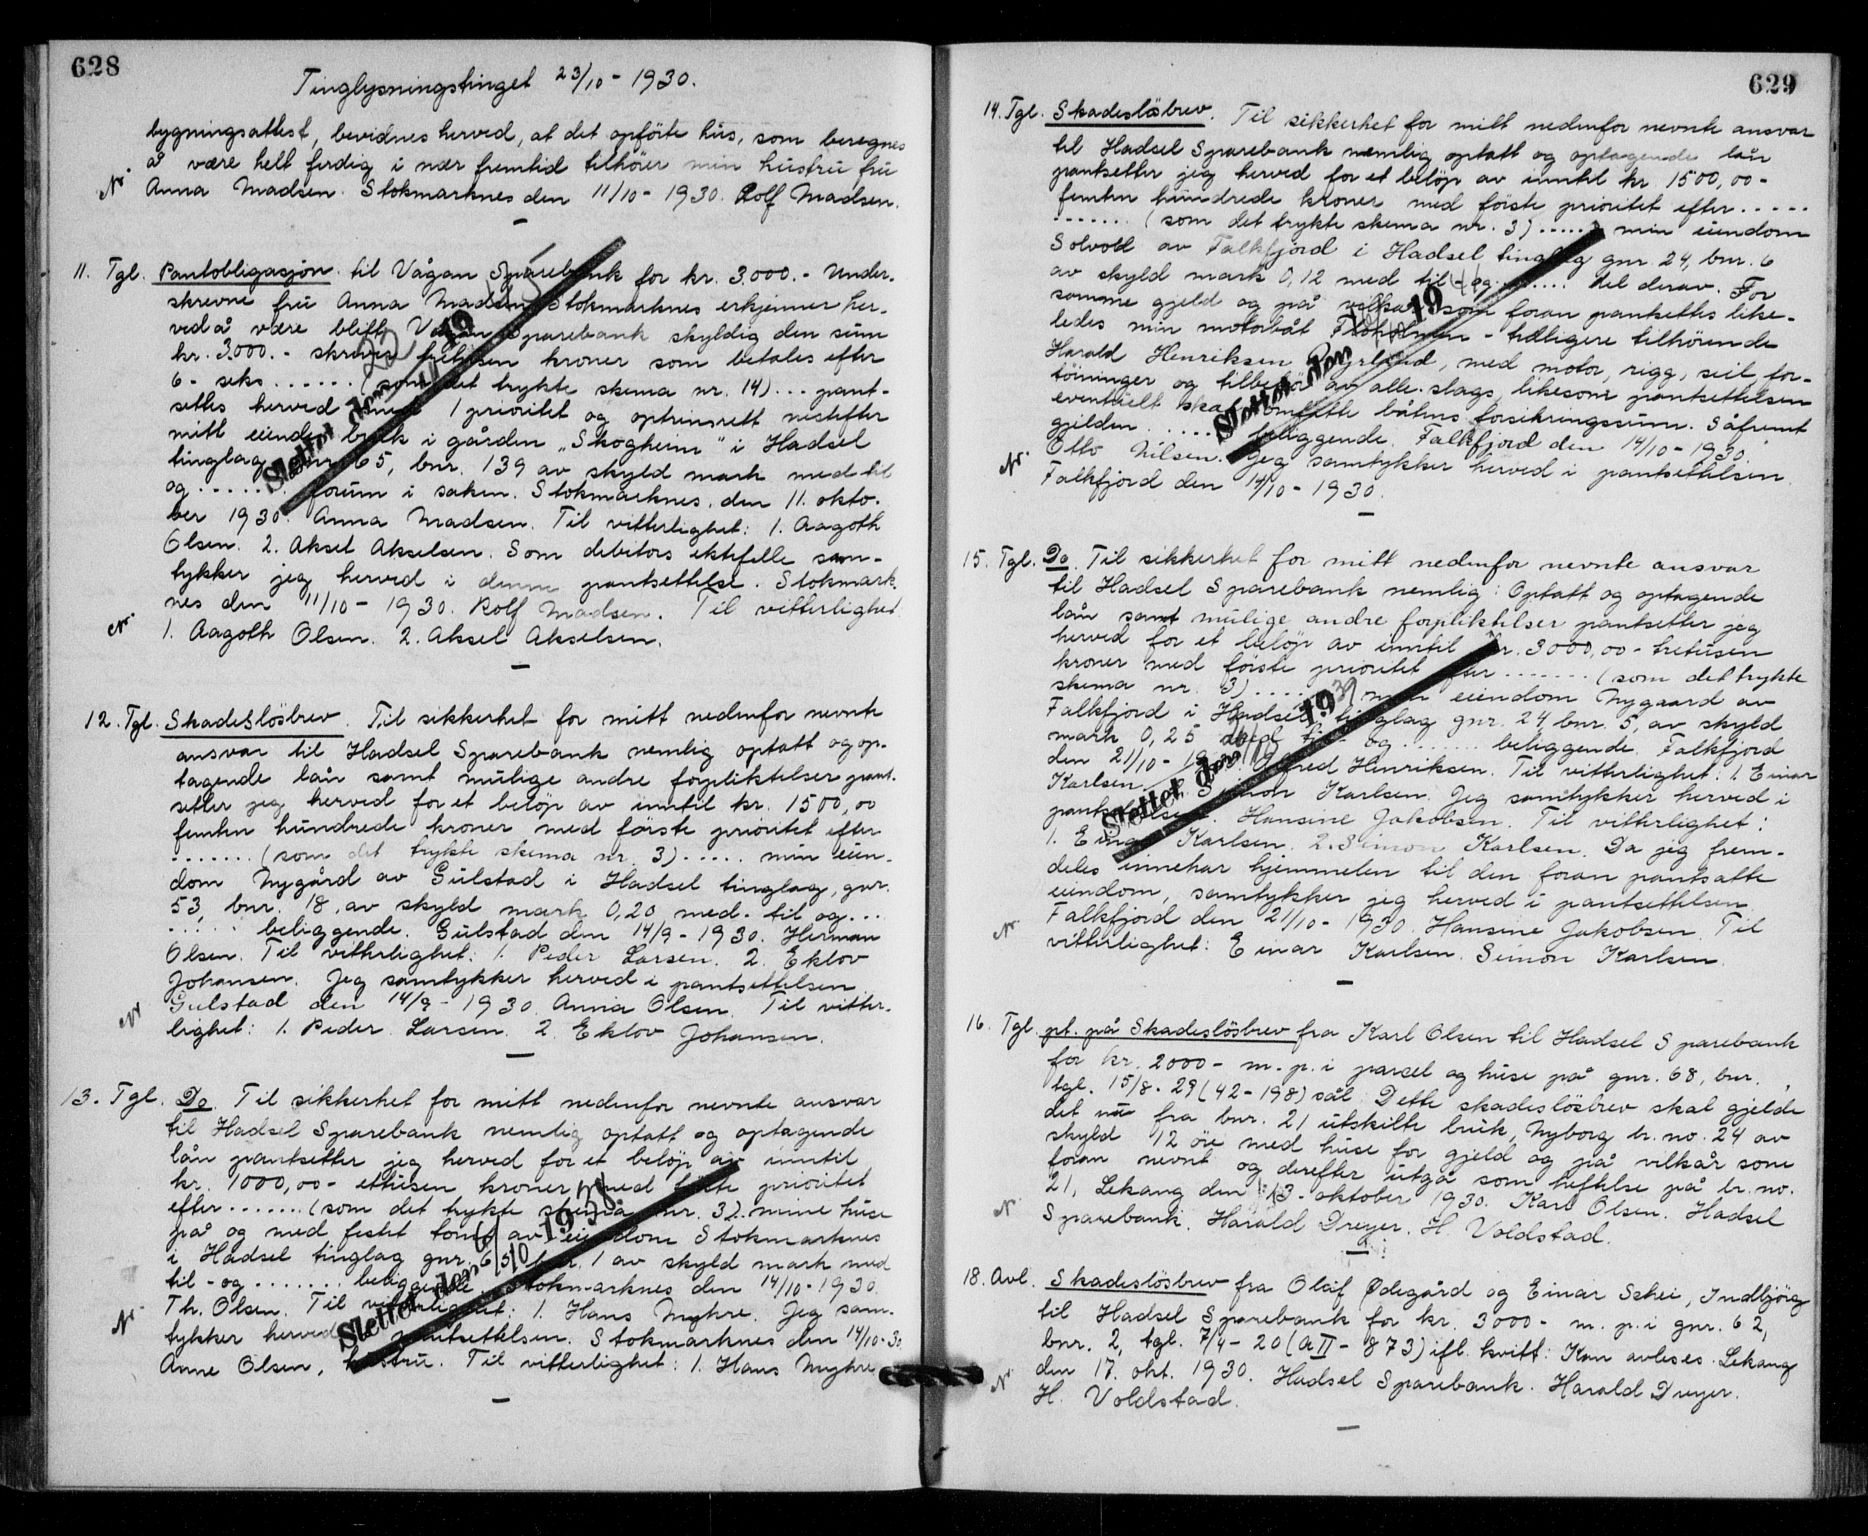 628
Tinglysningstinget 23/10 - 1930.
bygningsattest, bevidnes herved, at det opførte hus, som beregnes
å være helt ferdig i nær fremtid tilhöer min hustru fru
Anna Madsen. Stokmarknes den 11/10 - 1930. Rolf Madsen.
11. Tgl. Pantobligasjon til Vågan Sparebank for kr. 3000.- Under-
skrevne fru Anna Madsen, Stokmarknes erkjenner her-
ved å være blitt Vågan Sparebank skyldig den sum
kr. 3000.- skriver tretusen kroner som betales efter
6- seks ...... (som det trykte skema nr. 14) ... pant-
settes herved med 1 prioritet og optrinsrett nestefter
mitt eiende bruk i gården "Skogheim" i Hadsel
tinglag gnr. 65, bnr. 139 av skyld mark med til
og ....... forum i saken. Stokmarknes, den 11. okto-
ber 1930. Anna Madsen. Til vitterlighet: 1. Aagoth
Olsen. 2. Aksel Akselsen. Som debitors ektefelle sam-
tykker jeg herved i denne pantsettelse. Stokmark-
nes den 11/10 - 1930. Rolf Madsen. Til vitterlighet
1. Aagoth Olsen. 2. Aksel Akselsen.
Slettet den 19
12. Tgl. Skadeslösbrev. Til sikkerhet for mitt nedenfor nevnte
ansvar til Hadsel Sparebank nemlig optatt og op-
tagende lån samt mulige andre forpliktelser pant-
setter jeg herved for et belöp av inntil kr. 1500,00
femten hundrede kroner med förste prioritet efter
....... (som det trykte skema nr. 3) ..... min eien-
dom Nygård av Gulstad i Hadsel tinglag, gnr.
53, bnr. 18, av skyld mark 0,20 med- til og ...
..... beliggende. Gulstad den 14/9 - 1930. Herman
Olsen. Til vitterlighet: 1. Peder Larsen. 2. Eklov
Johansen. Jeg samtykker herved i pantsettelsen
Gulstad den 14/9 - 1930. Anna Olsen. Til vitter-
lighet: 1. Peder Larsen. 2. Eklov Johansen.
13. Tgl. Do. Til sikkerhet for mitt nedenfor nevnte ansvar
til Hadsel Sparebank nemlig optatt og optagende
lån pantsetter jeg herved for et belöp av inntil
kr. 1000,00 - ettusen kroner med förste prioritet
efter ....... (som det trykte skema nr. 3). mine huse
på og med festet tomt av eiendom Stokmarknes
i Hadsel tinglag gnr. 65, bnr. 1 av skyld mark med
til - og ....... beliggende Stokmarknes den 14/10 - 1930
Th. Olsen. Til vitterlighet: 1. Hans Myhre. Jeg sam-
tykker herved i pantsettelsen. Stokmarknes den 14/10-30
Anne Olsen, hustru. Til vitterlighet: 1. Hans Myhre
Slettet den 6/10 1938.
629
14. Tgl. Skadeslösbrev. Til sikkerhet for mitt nedenfor nevnte ansvar
til Hadsel Sparebank nemlig optatt og optagende lån
pantsetter jeg herved for et belöp av inntil kr. 1500,00 -
femten hundrede kroner med förste prioritet efter .....
....... (som det trykte skema nr. 3) ...... min eiendom
Solvold av Falkfjord i Hadsel tinglag gnr. 24, bnr. 6
av skyld mark 0,12 med til - og ..... del derav. For
samme gjeld og på vilkår som foran pantsettes like-
ledes min motorbåt Floholmen - tidligere tilhörende
Harald Henriksen Dyrlund, med motor, rigg, seil for-
töininger og tilbehör av alle slags, likesom pantsettelsen
eventuelt skal omfatte båtens forsikringssum. Såfremt
gjelden ..... beliggende. Falkfjord den 14/10 - 1930.
Otto Nilsen. Jeg samtykker herved i pantsettelsen
Falkfjord den 14/10 - 1930.
Slettet den 19
15. Tgl. Do. Til sikkerhet for mitt nedenfor nevnte ansvar
til Hadsel Sparebank nemlig: Optatt og optagende
lån samt mulige andre forpliktelser pantsetter jeg
herved for et belöp av inntil kr. 3000,00 - tretusen
kroner med förste prioritet efter ....... (som det trykte
skema nr. 3) ...... min eiendom Nygaard av
Falkfjord i Hadsel tinglag gnr. 24 bnr. 5, av skyld
mark 0,25 med til - og ....... beliggende. Falkfjord
den 21/10 - 1930. Alfred Henriksen. Til vitterlighet: 1. Einar
Karlsen 2. Simon Karlsen. Jeg samtykker herved i
pantsettelsen. Hansine Jakobsen. Til vitterlighet:
1. Einar Karlsen. 2. Simon Karlsen. Da jeg frem-
deles innehar hjemmelen til den foran pantsatte
eiendom, samtykker jeg herved i pantsettelsen.
Falkfjord den 21/10 - 1930. Hansine Jakobsen. Til
vitterlighet: Einar Karlsen. Simon Karlsen.
Slettet den 1939
16. Tgl. pt. på Skadeslösbrev fra Karl Olsen til Hadsel Sparebank
for kr. 2000 - m. p. i parsel og huse på gnr. 68, bnr. ,
tgl. 15/8. 29 (42 - 198) sål: Dette skadeslösbrev skal gjelde
det nu fra bnr. 21 utskilte bruk, Nyborg br. no. 24 av
skyld 12 öre med huse for gjeld og på vilkår som
foran nevnt og derefter utgå som heftelse på br. no.
21, Lekang den 13. oktober 1930. Karl Olsen. Hadsel
Sparebank. Harald Dreyer. H. Voldstad.
18. Avl. Skadeslösbrev fra Olaf Ødegård og Einar Schei, Indbjörg
til Hadsel Sparebank for kr. 3000 - m. p. i gnr. 62,
bnr. 2, tgl. 7/4 - 20 (A II - 873) ifl. kvitt: Kan avleses. Lekang
den 17. okt. 1930. Hadsel Sparebank. Harald Dreyer.
H. Voldstad.